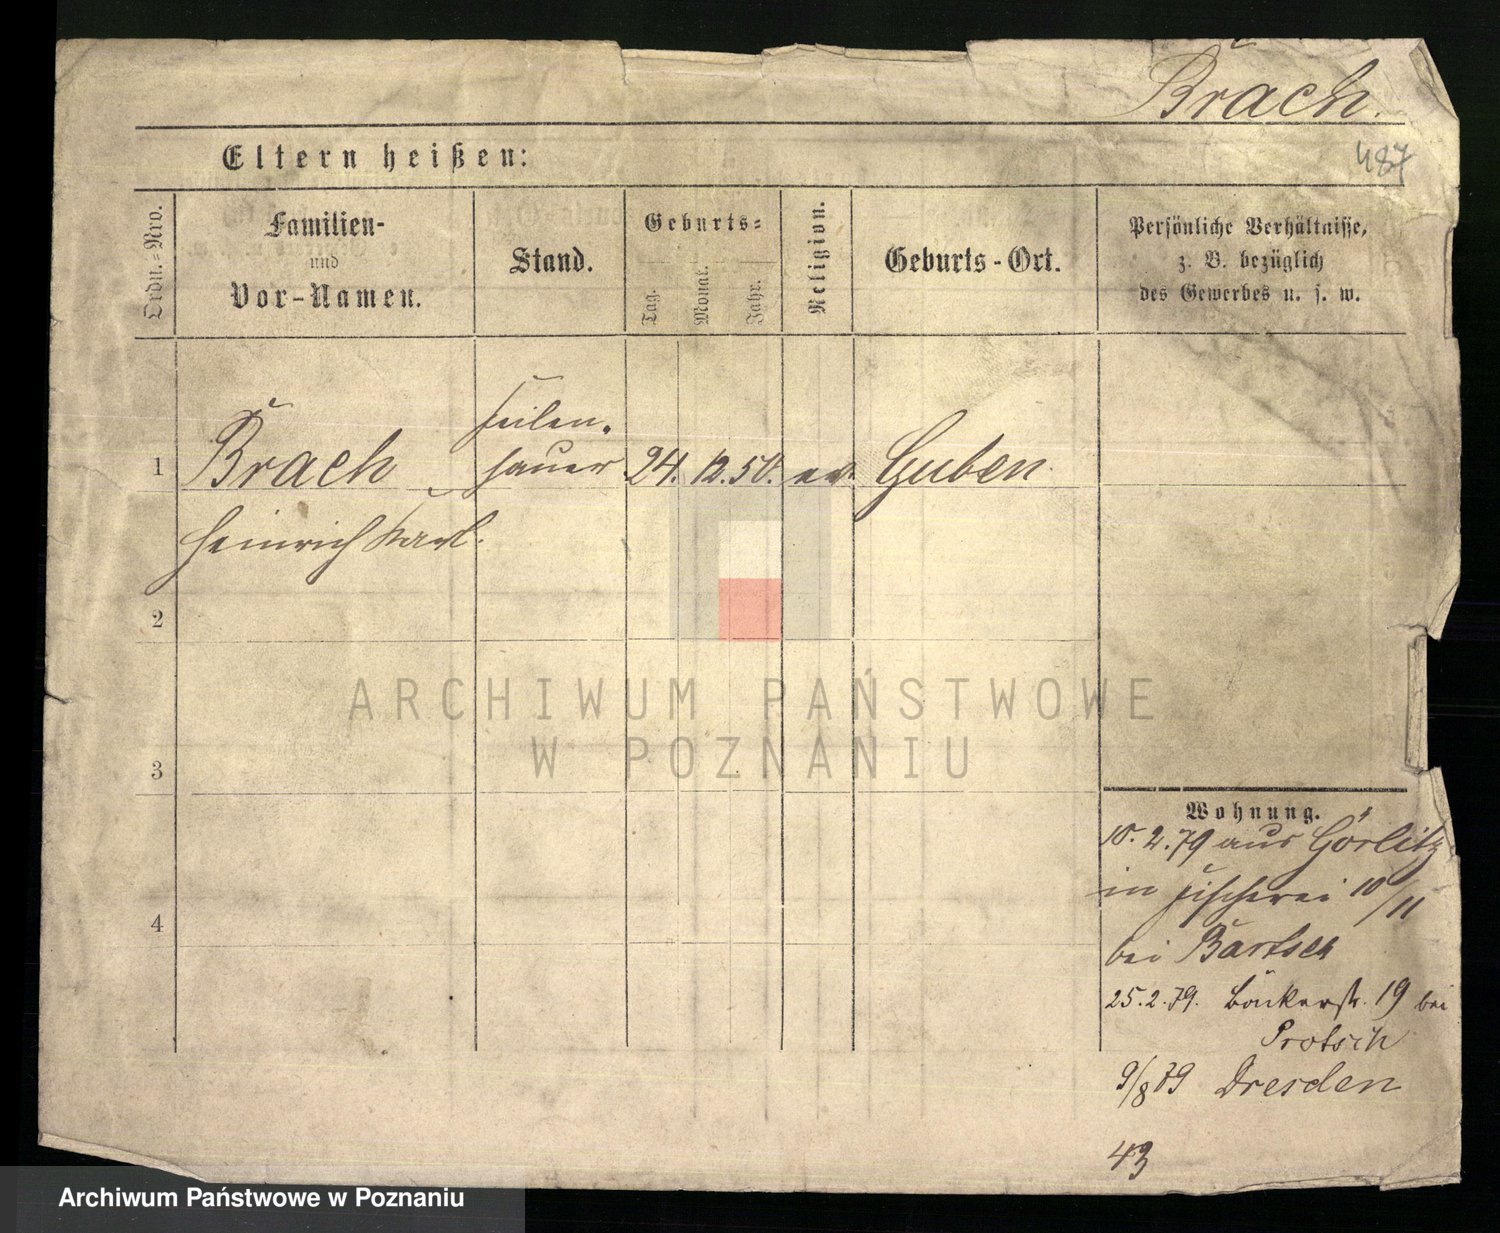 Brach.
487
Eltern heißen:
Ordn.=Nro.
Familien-
und
Vor-Namen.
Stand.
Geburts=
Tag.
Monat.
Jahr.
Religion.
Geburts-Ort.
Persönliche Verhältnisse,
z. B. bezüglich
des Gewerbes u. s. w.
Feilen-
1 Brach hauer 24. 12. 50. ev. Guben
Heinrich Karl.
2
ARCHIWUM PAŃSTWOWE
W POZNANIU
3
Wohnung.
10. 2. 79 aus Görlitz
in Fischerei 10/11
4
bei Bartsch
25. 2. 79. Bäckerstr. 19 bei
Protsch
9/8 79 Dresden
43
Archiwum Państwowe w Poznaniu